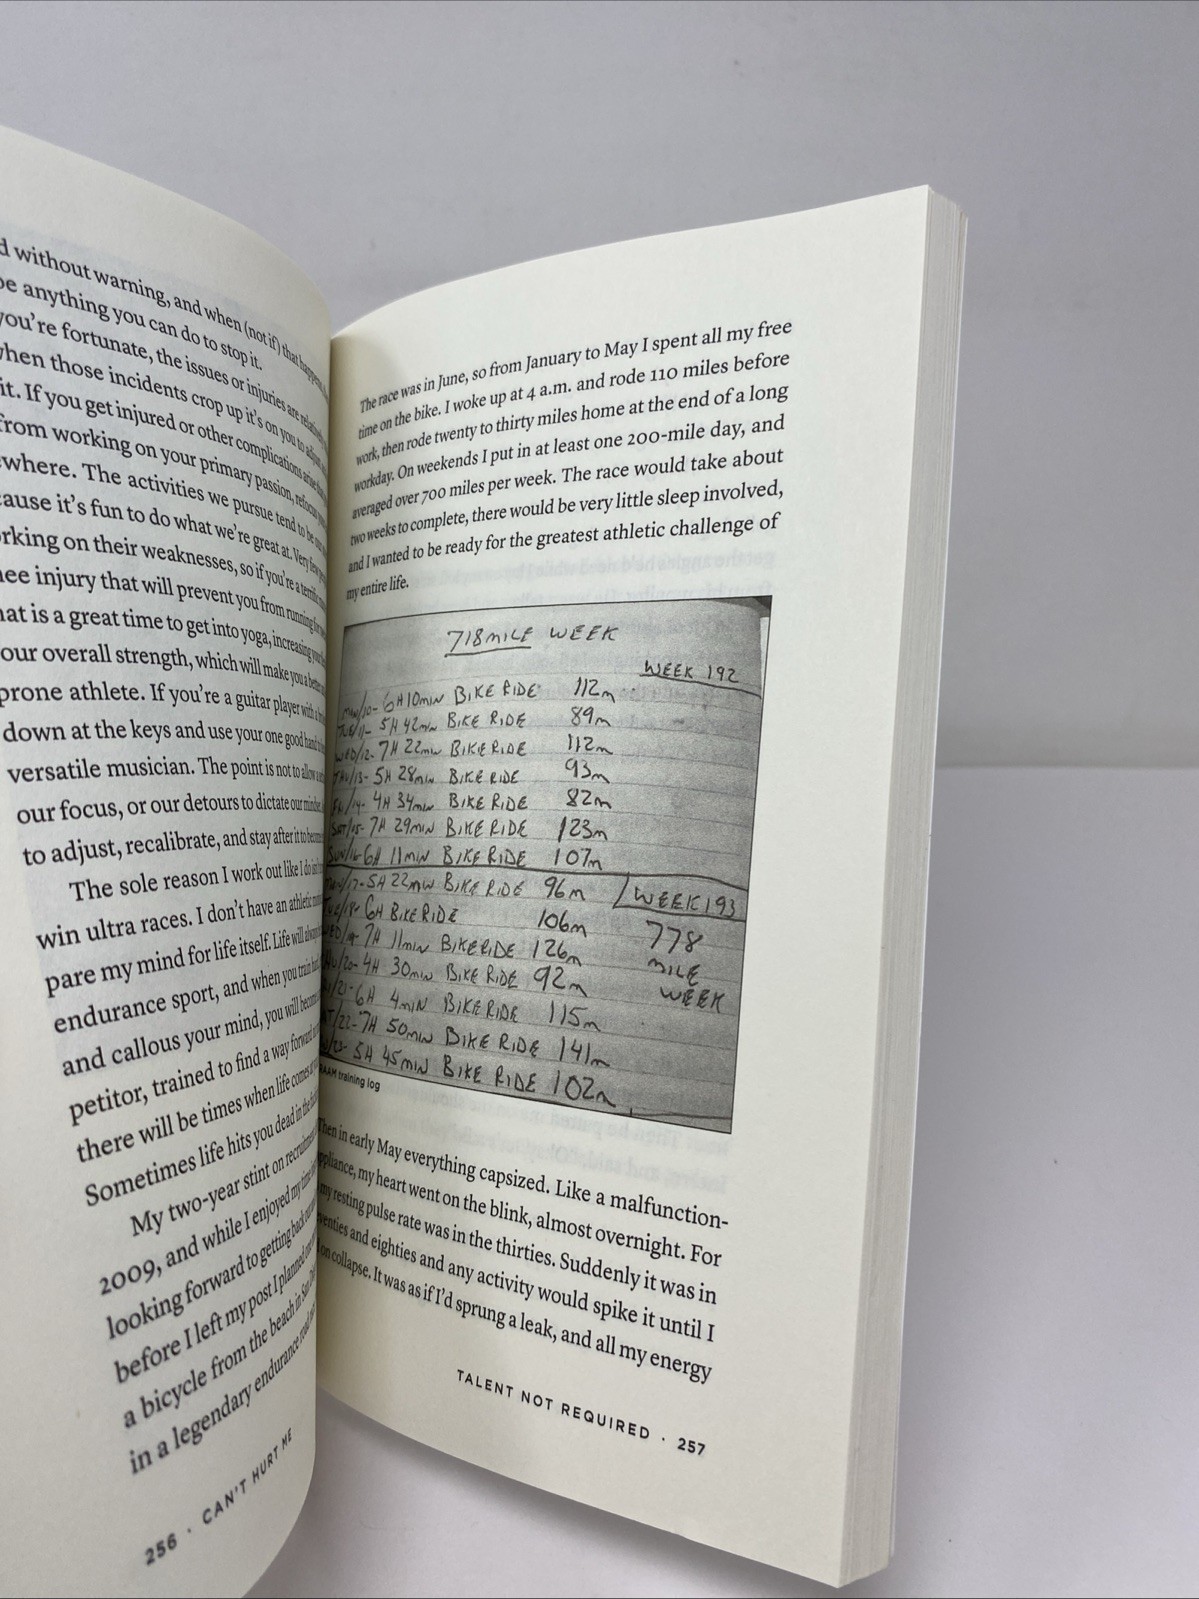 d without warning, and when (not if) that happens,
be anything you can do to stop it.
you're fortunate, the issues or injuries are relatively
when those incidents crop up it's on you to adjust
it. If you get injured or other complications arise
from working on your primary passion, refocus
where. The activities we pursue tend to be our
cause it's fun to do what we're great at. Very few
rking on their weaknesses, so if you're a terrific
nee injury that will prevent you from running for
hat is a great time to get into yoga, increasing your
our overall strength, which will make you a better
prone athlete. If you're a guitar player with a
down at the keys and use your one good hand
versatile musician. The point is not to allow
our focus, or our detours to dictate our mindset.
to adjust, recalibrate, and stay after it to become
The sole reason I work out like I do isn't
win ultra races. I don't have an athletic
pare my mind for life itself. Life will always
endurance sport, and when you train
and callous your mind, you will become
petitor, trained to find a way forward
there will be times when life comes
Sometimes life hits you dead in the
My two-year stint on recruitment
2009, and while I enjoyed my time
looking forward to getting back
before I left my post I planned
a bicycle from the beach in San
in a legendary endurance road
256 · CAN'T HURT ME
The race was in June, so from January to May I spent all my free
time on the bike. I woke up at 4 a.m. and rode 110 miles before
work, then rode twenty to thirty miles home at the end of a long
workday. On weekends I put in at least one 200-mile day, and
averaged over 700 miles per week. The race would take about
two weeks to complete, there would be very little sleep involved,
and I wanted to be ready for the greatest athletic challenge of
my entire life.
718 MILE WEEK
WEEK 192
MON/10- 6H 10MIN BIKE RIDE 112m
TUE/11- 5H 42MIN BIKE RIDE 89m
WED/12- 7H 22MIN BIKE RIDE 112m
THU/13- 5H 28MIN BIKE RIDE 93m
FRI/14- 4H 34MIN BIKE RIDE 82m
SAT/15- 7H 29MIN BIKE RIDE 123m
SUN/16- 6H 11MIN BIKE RIDE 107m
MON/17- 5H 22MIN BIKE RIDE 96m WEEK 193
TUE/18- 6H BIKE RIDE 106m 778
WED/19- 7H 11MIN BIKE RIDE 126m MILE
THU/20- 4H 30MIN BIKE RIDE 92m WEEK
/21- 6H 4MIN BIKE RIDE 115m
AT/22- 7H 50MIN BIKE RIDE 141m
/23- 5H 45MIN BIKE RIDE 102m
RAAM training log
Then in early May everything capsized. Like a malfunction-
ppliance, my heart went on the blink, almost overnight. For
my resting pulse rate was in the thirties. Suddenly it was in
venties and eighties and any activity would spike it until I
on collapse. It was as if I'd sprung a leak, and all my energy
TALENT NOT REQUIRED · 257